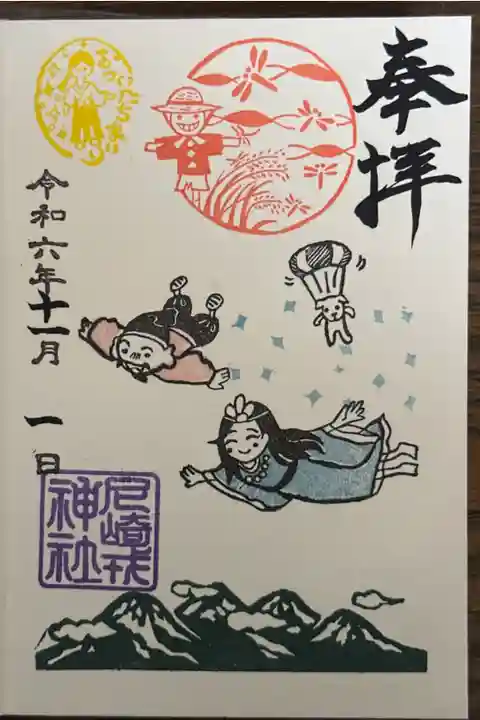 奉拝
令和六年十一月 一日
尼崎戎
神社